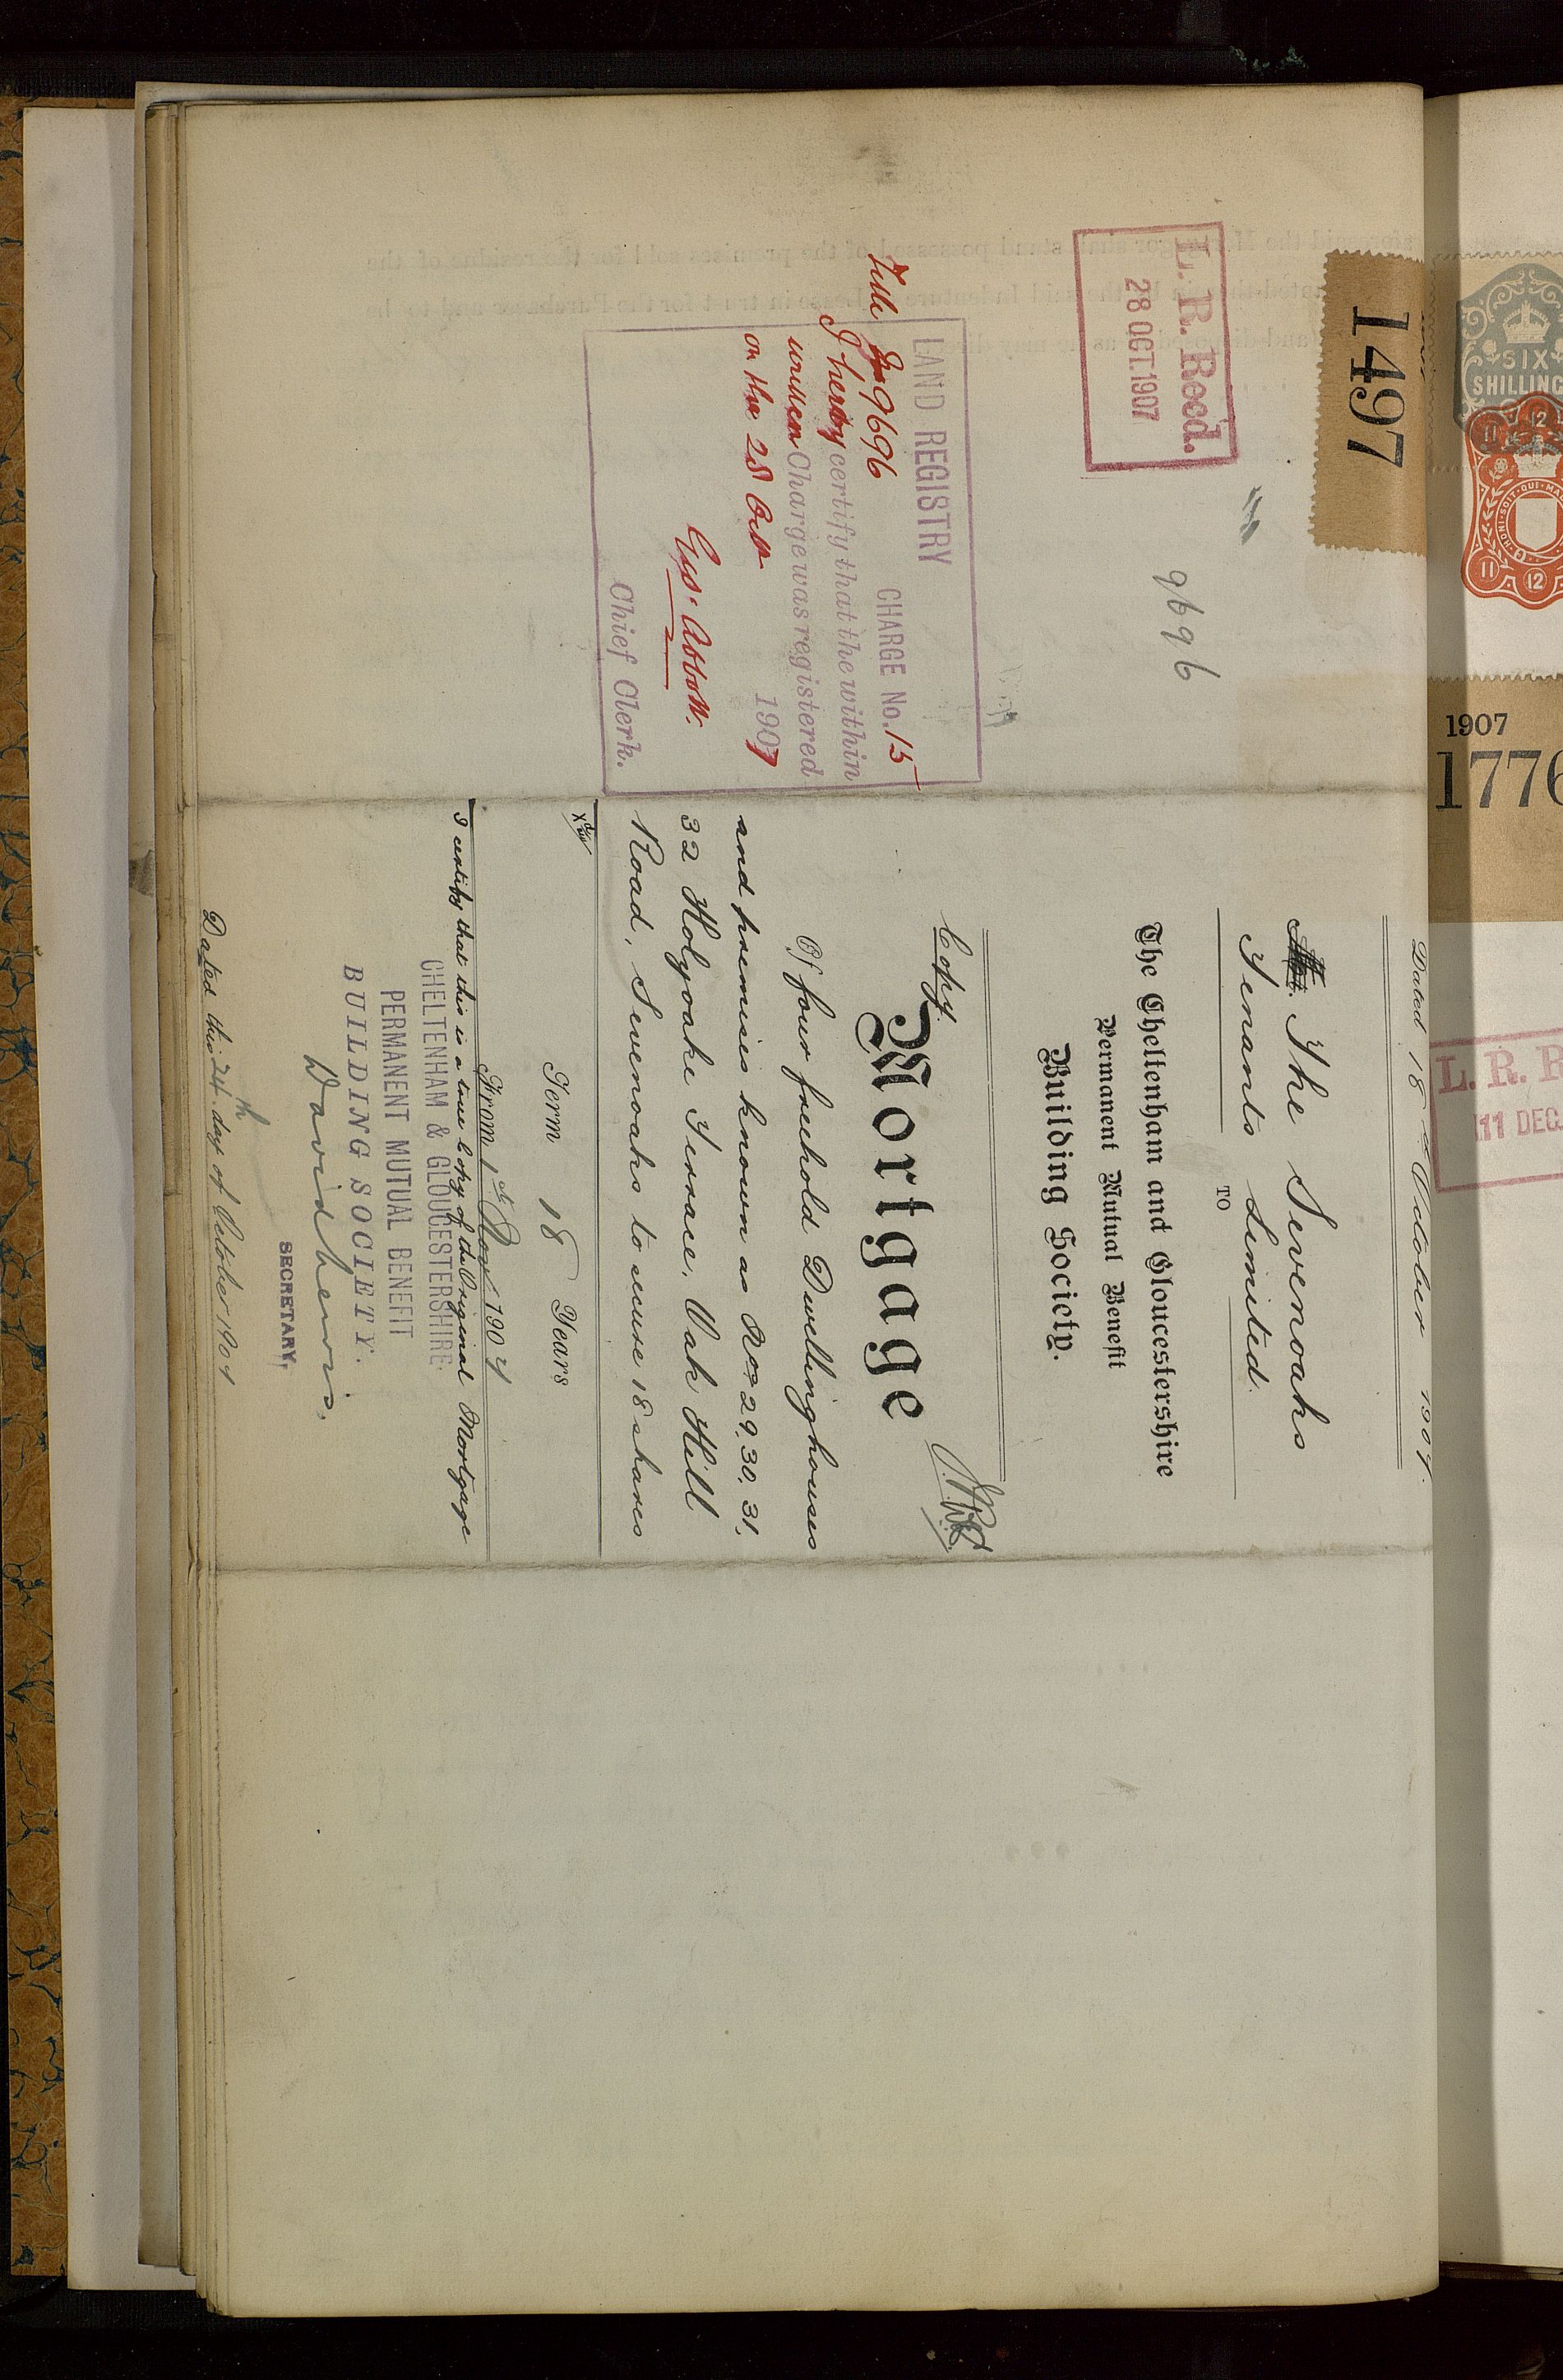 1497
L. R. Recd.
28 OCT. 1907
9696
LAND REGISTRY
Title 9696 CHARGE No. 15
I hereby certify that the within
written Charge was registered
on the 28 Octr 1907
Geo. Abbott.
Chief Clerk.
Dated 18th October 1907.
The Sevenoaks
Tenants Limited.
TO
The Cheltenham and Gloucestershire
Permanent Mutual Benefit
Building Society.
Copy.
Mortgage
Of four freehold Dwellinghouses
and premises known as Nos 29, 30, 31,
32 Holyoake Terrace, Oak Hill
Road, Sevenoaks to secure 18 shares
Term 18 Years
From 1st Novr 1907
I certify that this is a true Copy of the Original Mortgage
CHELTENHAM & GLOUCESTERSHIRE
PERMANENT MUTUAL BENEFIT
BUILDING SOCIETY.
David Lewis,
SECRETARY,
Dated this 24th day of October 1907
SIX
SHILLING
HONI·SOIT·QUI·MA
11
12
11
12
1907
1776
L. R. R
11 DEC.